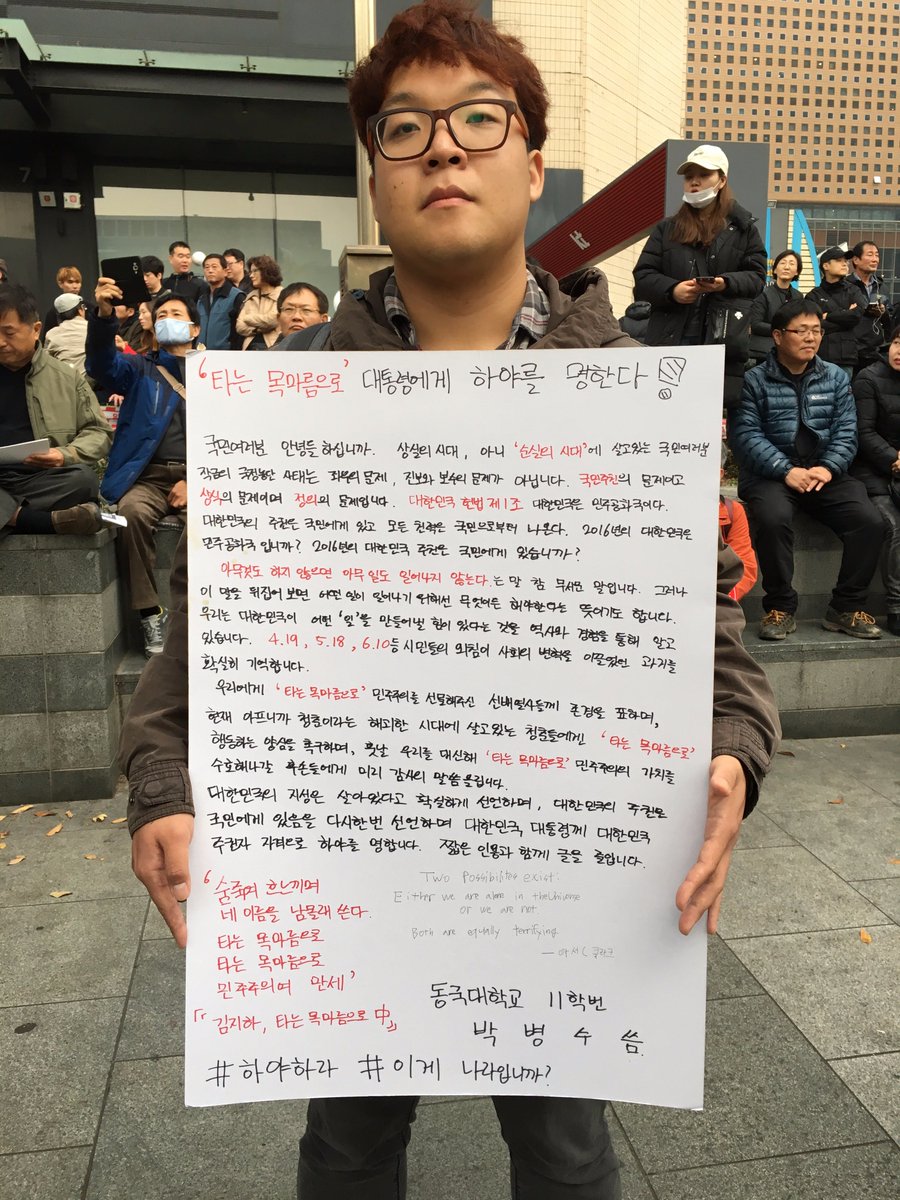 '타는 목마름으로' 대통령에게 하야를 명한다!!
국민여러분 안녕들 하십니까. 상실의 시대, 아니 '순실의 시대'에 살고있는 국민여러분
작금의 국정농단 사태는 좌우의 문제, 진보와 보수의 문제가 아닙니다. 국민주권의 문제이고
상식의 문제이며 정의의 문제입니다. 대한민국 헌법 제1조 대한민국은 민주공화국이다.
대한민국의 주권은 국민에게 있고 모든 권력은 국민으로부터 나온다. 2016년의 대한민국은
민주공화국 입니까? 2016년의 대한민국 주권은 국민에게 있습니까?
아무것도 하지 않으면 아무 일도 일어나지 않는다.는 말 참 무서운 말입니다. 그러나
이 말을 뒤집어 보면 어떤 일이 일어나기 위해선 무엇이든 해야한다는 뜻이기도 합니다.
우리는 대한민국이 어떤 '일'을 만들어낼 힘이 있다는 것을 역사와 경험을 통해 알고
있습니다. 4.19, 5.18, 6.10등 시민들의 외침이 사회의 변혁을 이끌었던 과거를
확실히 기억합니다.
우리에게 '타는 목마름으로' 민주주의를 선물해주신 선배열사들께 존경을 표하며,
현재 아프니까 청춘이라는 해괴한 시대에 살고있는 청춘들에겐 '타는 목마름으로'
행동하는 양심을 촉구하며, 훗날 우리를 대신해 '타는 목마름으로' 민주주의의 가치를
수호해나갈 후손들에게 미리 감사의 말씀 올립니다.
대한민국의 지성은 살아있다고 확실하게 선언하며, 대한민국의 주권은
국민에게 있음을 다시한번 선언하며 대한민국 대통령께 대한민국
주권자 자격으로 하야를 명합니다. 짧은 인용과 함께 글을 줄입니다.
'숨죽여 흐느끼며
네 이름을 남몰래 쓴다.
타는 목마름으로
타는 목마름으로
민주주의여 만세'
『김지하, 타는 목마름으로 中』
Two Possibilites exist:
Either we are alone in the Universe
or we are not.
Both are equally terrifying.
— 아서 C 클라크
동국대학교 11학번
박 병 수 씀.
#하야하라 #이게 나라입니까?